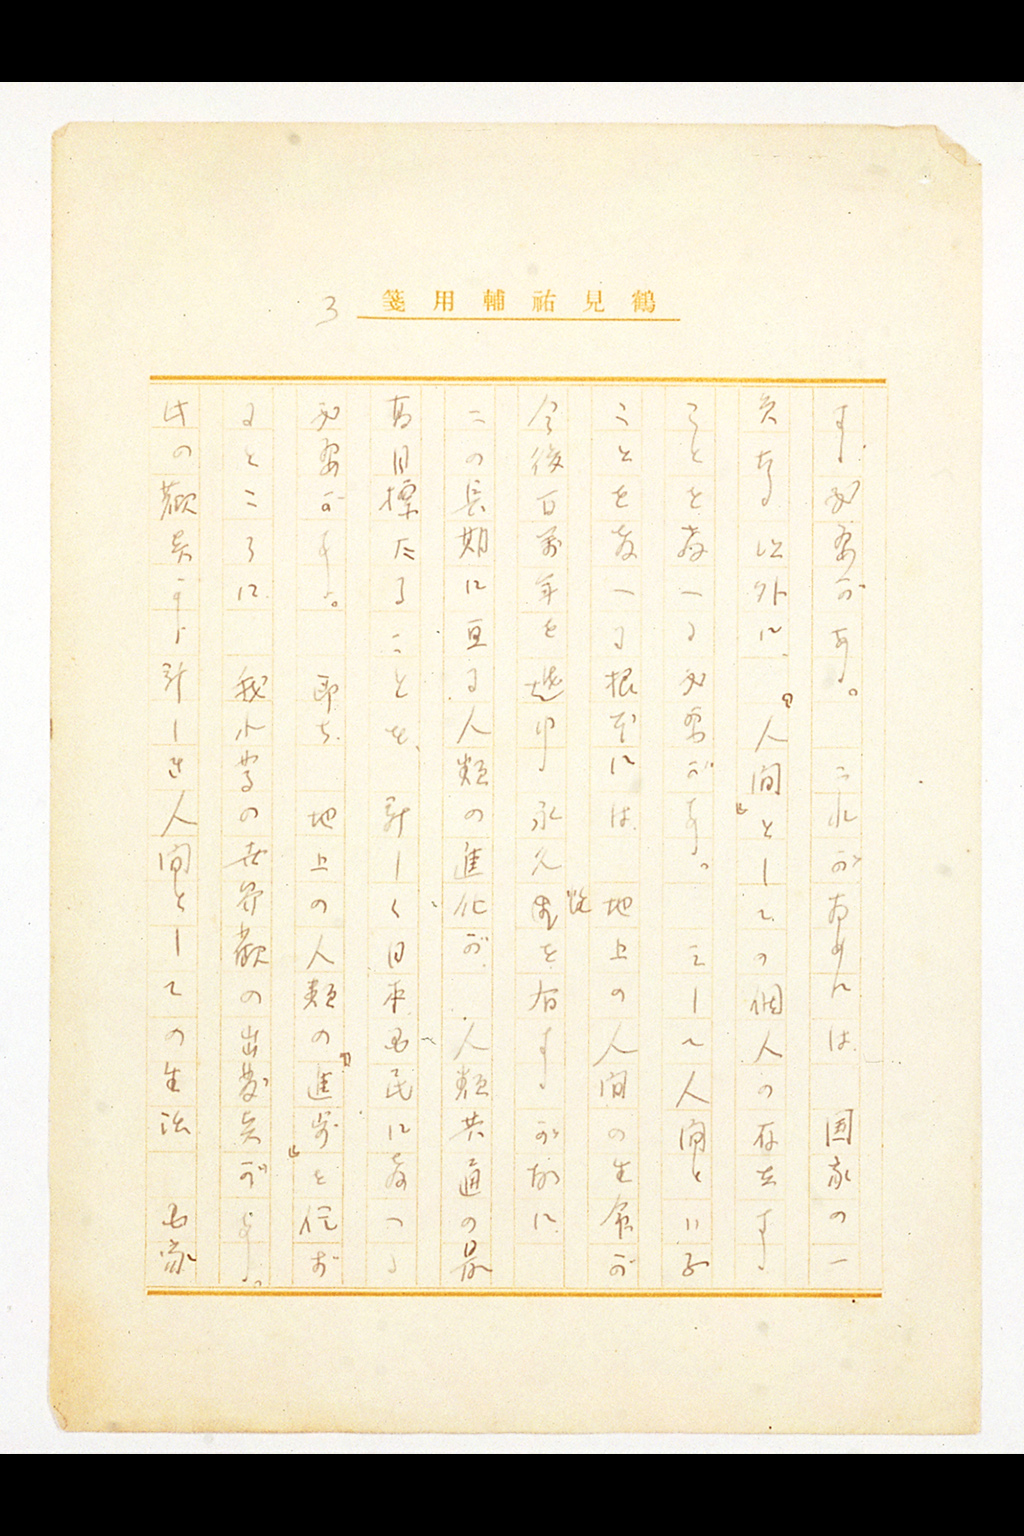 鶴見祐輔用箋
3
す必要がある。これがためには 国家の一
員たる以外に 『人間』としての個人の存在する
ことを教へる必要がある。そして人間といふ
ことを教へる根本には 地上の人間の生命が
今後百万年を超ゆる永久性を有するが故に
この長期に亘る人類の進化が 人類共通の最
高目標たることを、新しく日本国民に教へる
必要がある。 即ち 地上の人類の『進歩』を信ず
るところに 我ホ等の世界観の出発点がある。
此の観点より新しき人間としての生活 国家